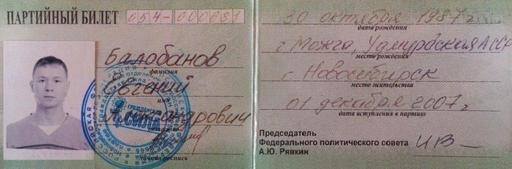 ПАРТИЙНЫЙ БИЛЕТ 054-000681
Балобанов
фамилия
Евгений
имя
Александрович
отчество
личная подпись
30 октября 1987
дата рождения
г. Можга, Удмурдская АССР
место рождения
г. Новосибирск
место жительства
01 декабря 2007 г.
дата вступления в партию
Председатель
Федерального политического совета
А.Ю. Рявкин